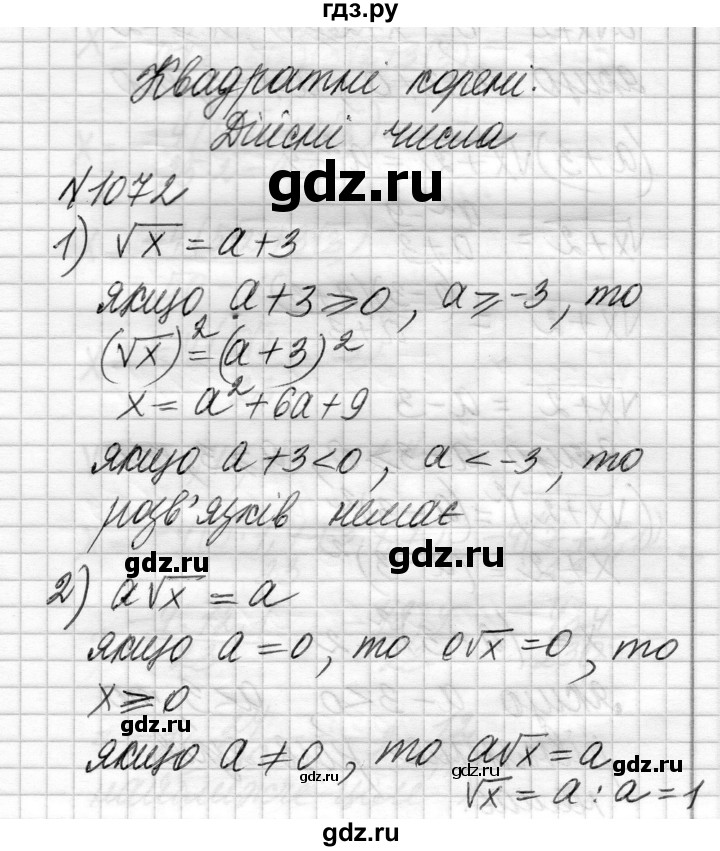 гдз.ру
Квадратні корені.
Дійсні числа
gdz.ru
№1072
1) √x = a+3
якщо a+3⩾0, a⩾-3, то
(√x)² = (a+3)²
x = a²+6a+9
якщо a+3<0, a<-3, то
розв'язків немає
gdz.ru gdz.ru
2) a√x = a
якщо a=0, то 0√x=0, то
x⩾0
gdz.ru
якщо a≠0, то a√x=a
gdz.ru gdz.ru gdz.ru
√x = a:a=1
gdz.ru
gdz.ru